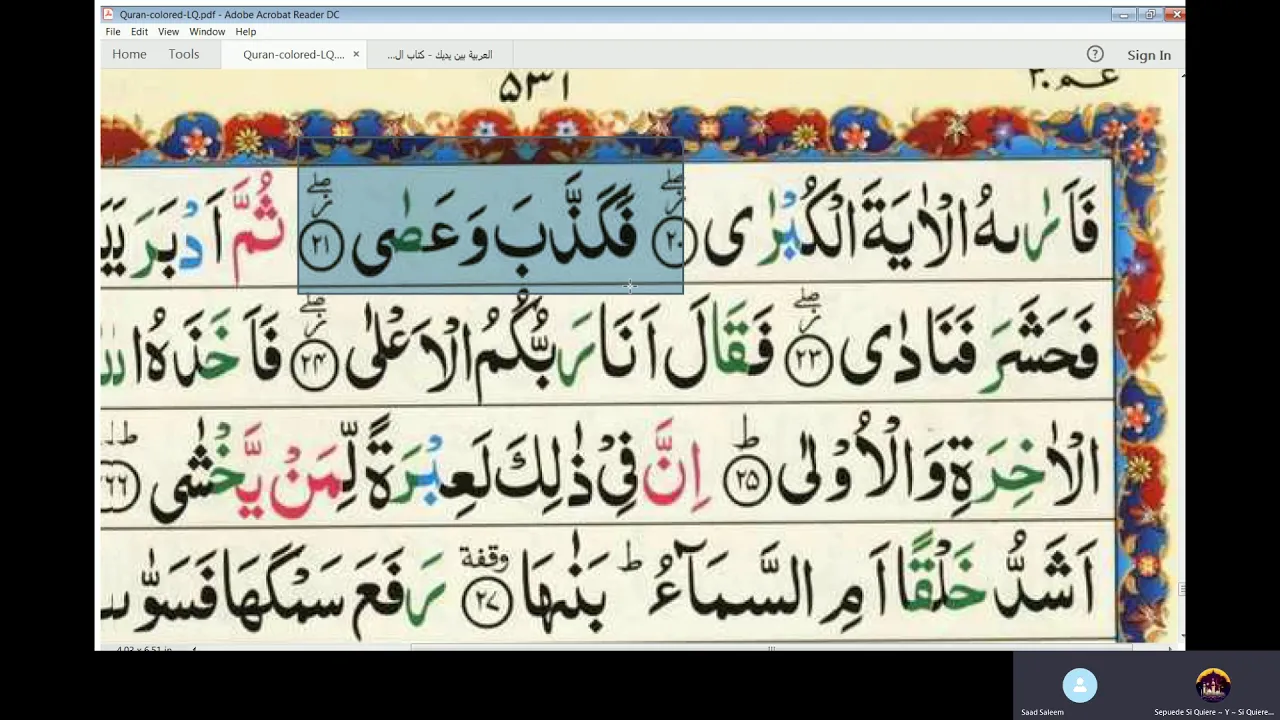 Quran-colored-LQ.pdf - Adobe Acrobat Reader DC
File Edit View Window Help
Home Tools Quran-colored-LQ.... × العربية بين يديك - كتاب ال... Sign In
۵۳۱ عـم ۳۰
فَاَرٰىهُ الْاٰيَةَ الْكُبْرٰى ۲۰ فَكَذَّبَ وَعَصٰى ۲۱ ثُمَّ اَدْبَرَ
فَحَشَرَ فَنَادٰى ۲۳ فَقَالَ اَنَا رَبُّكُمُ الْاَعْلٰى ۲۴ فَاَخَذَهُ
الْاٰخِرَةِ وَالْاُوْلٰى ط ۲۵ اِنَّ فِيْ ذٰلِكَ لَعِبْرَةً لِّمَنْ يَّخْشٰى ط
اَشَدُّ خَلْقًا اَمِ السَّمَآءُ ط بَنٰىهَا وقفة ۲۷ رَفَعَ سَمْكَهَا
4.03 x 6.51 in
Saad Saleem Sepuede Si Quiere ~ Y ~ Si Quiere...